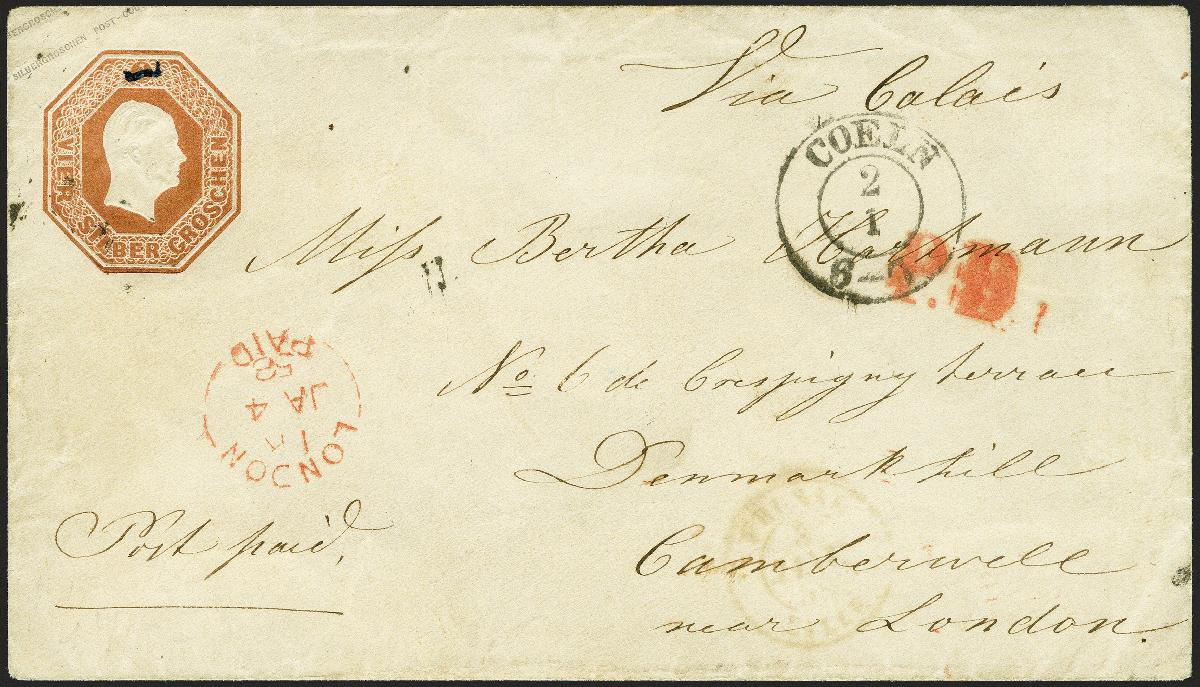 SILBERGROSCHEN POST-COU
VIER SILBER GROSCHEN
Via Calais
COELN
2
1
6-7
Miss Bertha Hortmann
P.D.
No 6 de Crespigny terrace
PAID
JA 4
LONDON
Denmark hill
Post paid.
Camberwell
near London.